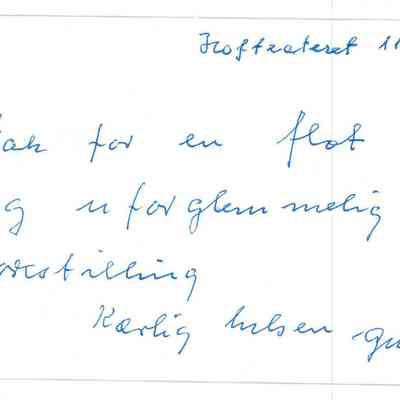 Hofteateret 11
Tak for en flot
og uforglemmelig
forestilling
Kærlig hilsen